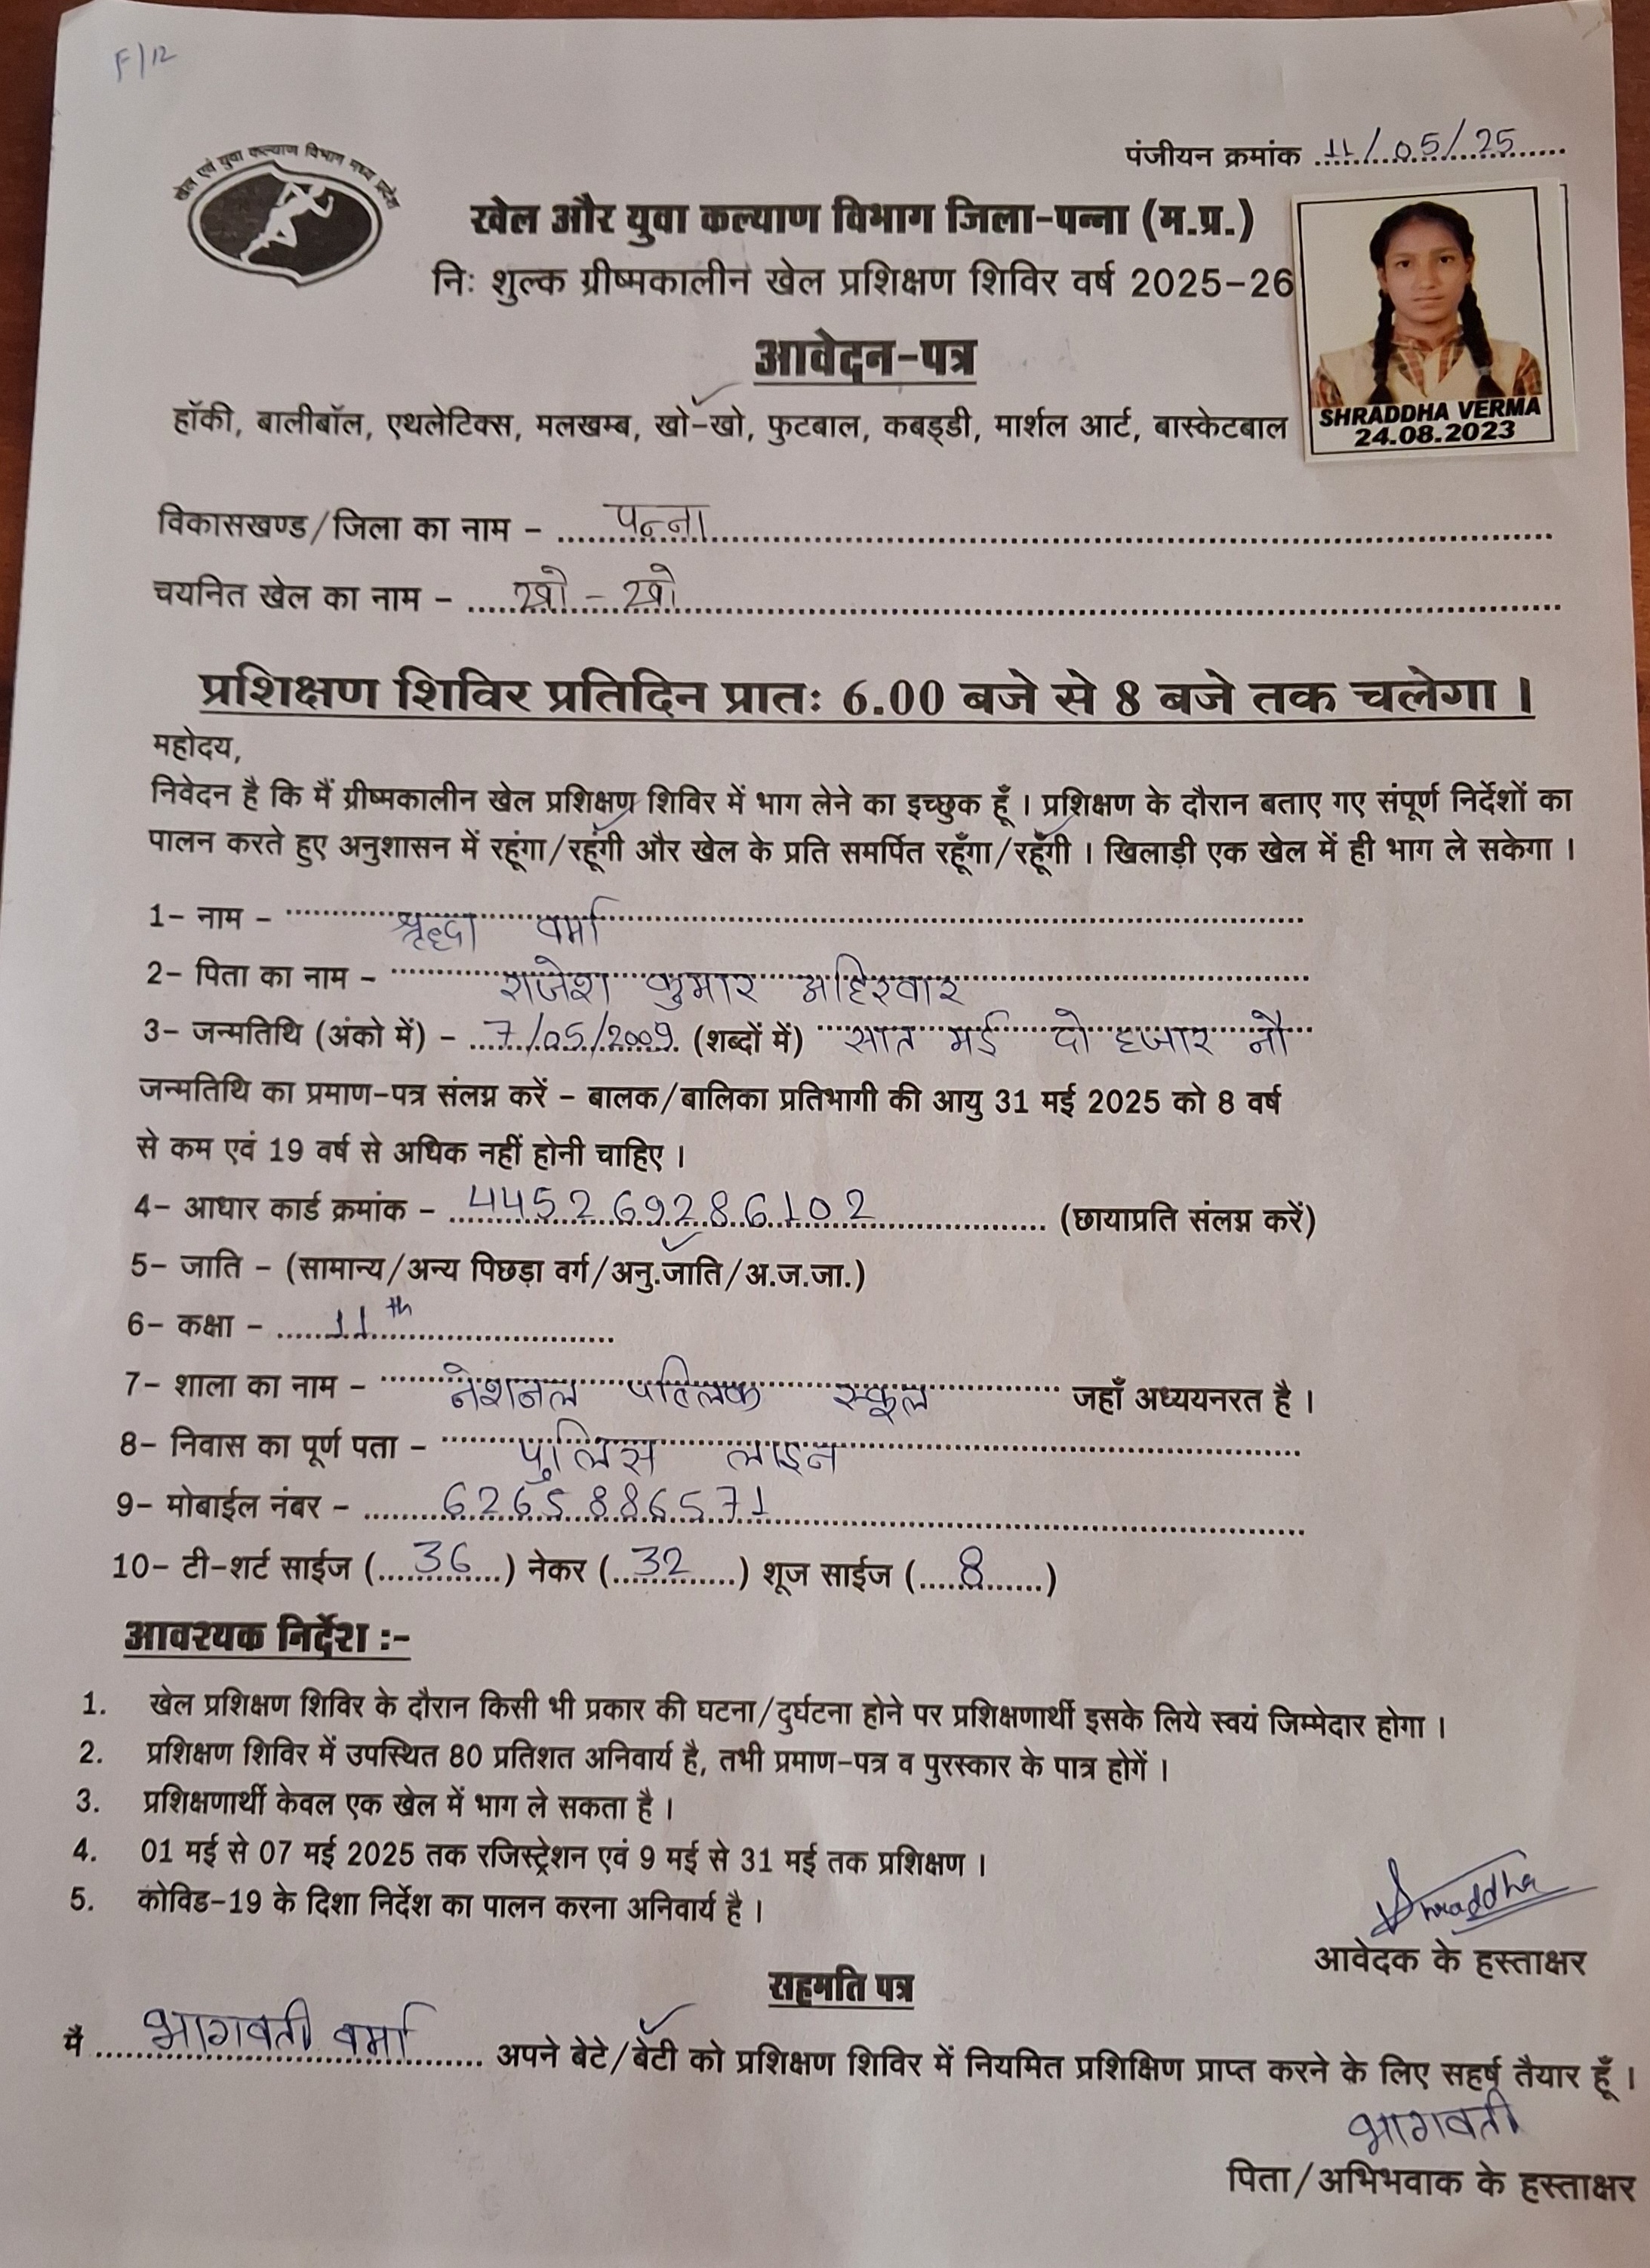 F/12
पंजीयन क्रमांक 11/05/25
खेल एवं युवा कल्याण विभाग मध्य प्रदेश
खेल और युवा कल्याण विभाग जिला-पन्ना (म.प्र.)
निः शुल्क ग्रीष्मकालीन खेल प्रशिक्षण शिविर वर्ष 2025-26
आवेदन-पत्र
हॉकी, बालीबॉल, एथलेटिक्स, मलखम्ब, खो-खो, फुटबाल, कबड्डी, मार्शल आर्ट, बास्केटबाल
SHRADDHA VERMA
24.08.2023
विकासखण्ड/जिला का नाम - पन्ना
चयनित खेल का नाम - खो - खो
प्रशिक्षण शिविर प्रतिदिन प्रातः 6.00 बजे से 8 बजे तक चलेगा।
महोदय,
निवेदन है कि मैं ग्रीष्मकालीन खेल प्रशिक्षण शिविर में भाग लेने का इच्छुक हूँ। प्रशिक्षण के दौरान बताए गए संपूर्ण निर्देशों का
पालन करते हुए अनुशासन में रहूंगा/रहूंगी और खेल के प्रति समर्पित रहूँगा/रहूँगी। खिलाड़ी एक खेल में ही भाग ले सकेगा।
1- नाम - श्रृद्धा वर्मा
2- पिता का नाम - राजेश कुमार अहिरवार
3- जन्मतिथि (अंको में) - 7/05/2009 (शब्दों में) सात मई दो हजार नौ
जन्मतिथि का प्रमाण-पत्र संलग्न करें - बालक/बालिका प्रतिभागी की आयु 31 मई 2025 को 8 वर्ष
से कम एवं 19 वर्ष से अधिक नहीं होनी चाहिए।
4- आधार कार्ड क्रमांक - 445269286102 (छायाप्रति संलग्न करें)
5- जाति - (सामान्य/अन्य पिछड़ा वर्ग/अनु.जाति/अ.ज.जा.)
6- कक्षा - 11th
7- शाला का नाम - नेशनल पब्लिक स्कूल जहाँ अध्ययनरत है।
8- निवास का पूर्ण पता - पुलिस लाइन
9- मोबाईल नंबर - 6265886571
10- टी-शर्ट साईज (36) नेकर (32) शूज साईज (8)
आवश्यक निर्देश :-
1. खेल प्रशिक्षण शिविर के दौरान किसी भी प्रकार की घटना/दुर्घटना होने पर प्रशिक्षणार्थी इसके लिये स्वयं जिम्मेदार होगा।
2. प्रशिक्षण शिविर में उपस्थित 80 प्रतिशत अनिवार्य है, तभी प्रमाण-पत्र व पुरस्कार के पात्र होगें।
3. प्रशिक्षणार्थी केवल एक खेल में भाग ले सकता है।
4. 01 मई से 07 मई 2025 तक रजिस्ट्रेशन एवं 9 मई से 31 मई तक प्रशिक्षण।
5. कोविड-19 के दिशा निर्देश का पालन करना अनिवार्य है।
Shraddha
आवेदक के हस्ताक्षर
सहमति पत्र
मै भागवती वर्मा अपने बेटे/बेटी को प्रशिक्षण शिविर में नियमित प्रशिक्षिण प्राप्त करने के लिए सहर्ष तैयार हूँ।
भागवती
पिता/अभिभवाक के हस्ताक्षर